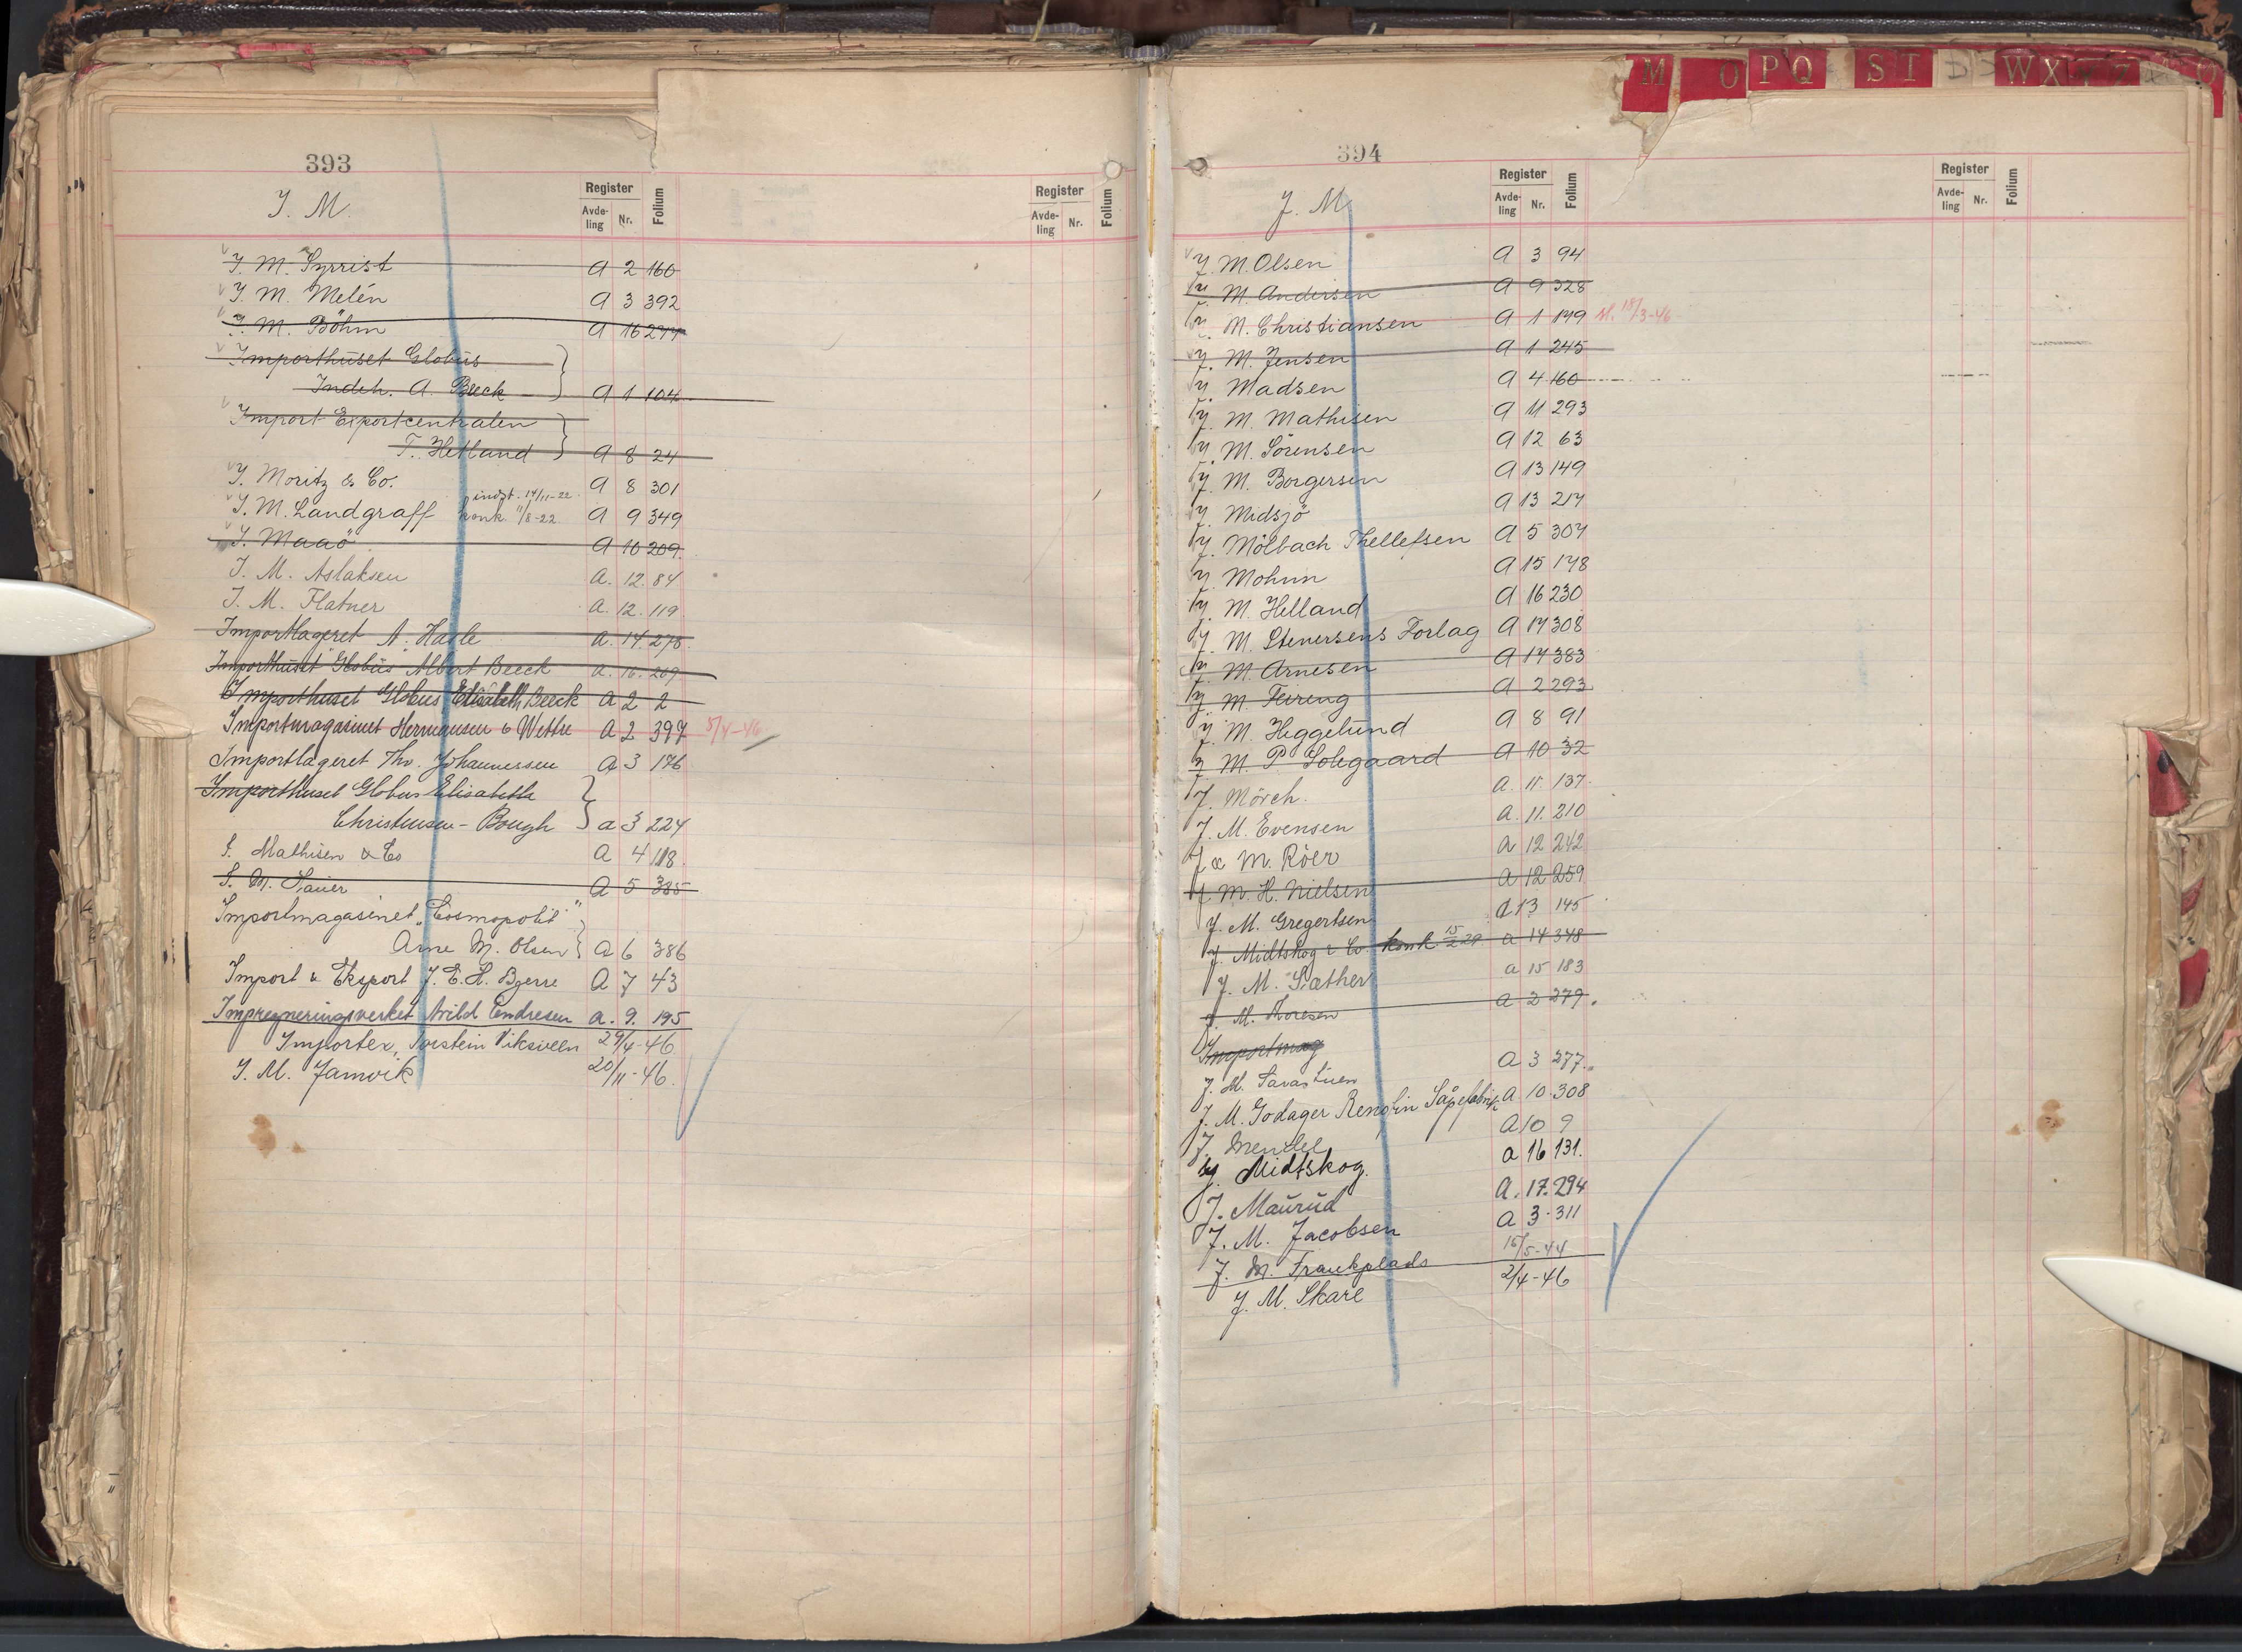 393
I. M.
Register
Avde-
ling
Nr.
Folium
Register
Avde-
ling
Nr.
Folium
I. M. Syrrist A 2 160
I. M. Melén A 3 392
I. M. Böhm A 16 277
Importhuset Globus
Indeh. A. Beeck A 1 104
Import-Exportcentralen
T. Hetland A 8 24
I. Moritz & Co. A 8 301
I. M. Landgraff konk. 11/8-22 indst. 14/11-22 A 9 349
I. Maaö A 10 209
I. M. Aslaksen A. 12. 84
I. M. Flatner A. 12. 119
Importlageret A. Hasle A. 14. 278.
Importhuset Globus Albert Beeck A. 16. 209
Importhuset Globus Elisabeth Beeck A 2 2
Importmagasinet Hermansen & Wethe A 2 397 5/4-46
Importlageret Thv. Johannessen A 3 176
Importhuset Globus Elisabeth
Christensen-Bough A 3 224
I. Mathisen & Co A 4 118.
I. M. A 5 385
Importmagasinet „Cosmopolit"
Arne M. Olsen A 6 386
Import & Eksport J. E. H. Bjerre A 7 43
Impregneringsverket Arild Endresen A. 9. 195
Importex, Torstein 29/4-46
I. M. Jamvik 20/11-46.
M O P Q S T W X
394
J. M.
Register
Avde-
ling
Nr.
Folium
Register
Avde-
ling
Nr.
Folium
J. M. Olsen A 3 94
J. M. Andersen A 9 328
J. M. Christiansen A 1 149 sl. 18/3-46
J. M. Jensen A 1 245
J. Madsen A 4 160
J. M. Mathisen A 11 293
J. M. Sörensen A 12 63
J. M. Borgersen A 13 149
J. Midsjö A 13 217
J. Mölbach Thellefsen A 5 307
J. Mohnn A 15 178
J. M. Helland A 16 230
J. M. Stenersens Forlag A 17 308
J. M. Arnesen A 17 383
J. M. Feiring A 2 293
J. M. Heggelund A 8 91
J. M. P. Solegaard A 10 32
J. Mörch. A. 11. 137.
J. M. Evensen A. 11. 210
J & M. Röer A 12 242
J. M. H. Nielsen A 12 259
J. M. Gregertsen A 13 145
J. Midtskog & Co. konk. 15/2 29 A 14 348
J. M. Sæther A 15 183
J. M. Thoresen A 2 279.
Importmag
J. M. Tavastuen A 3 277.
J. M. Godager Renofin Såpefabrik A 10 308
J. Mendel A 10 9
J. Midtskog. A 16 131.
J. Maurud A. 17. 294
J. M. Jacobsen A 3 311
J. M. Frankplads 15/5-44
J. M. Skare 2/4-46